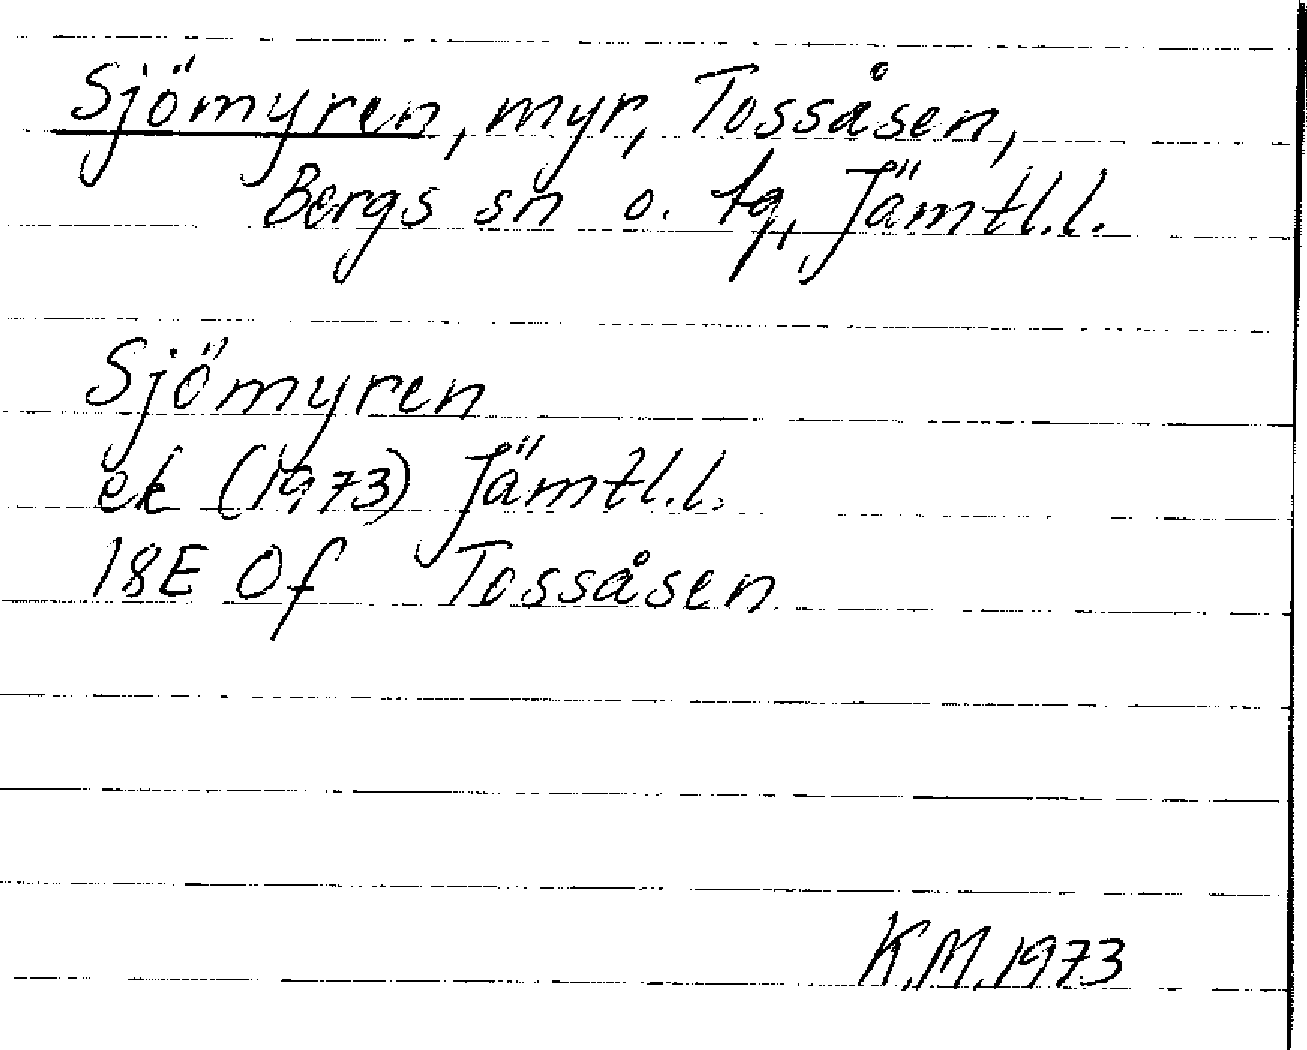 Sjömyren, myr, Tossåsen,
Bergs sn o. tg, Jämtl.l.
Sjömyren
ek (1973) Jämtl.l.
18E 0f Tossåsen
K.M. 1973